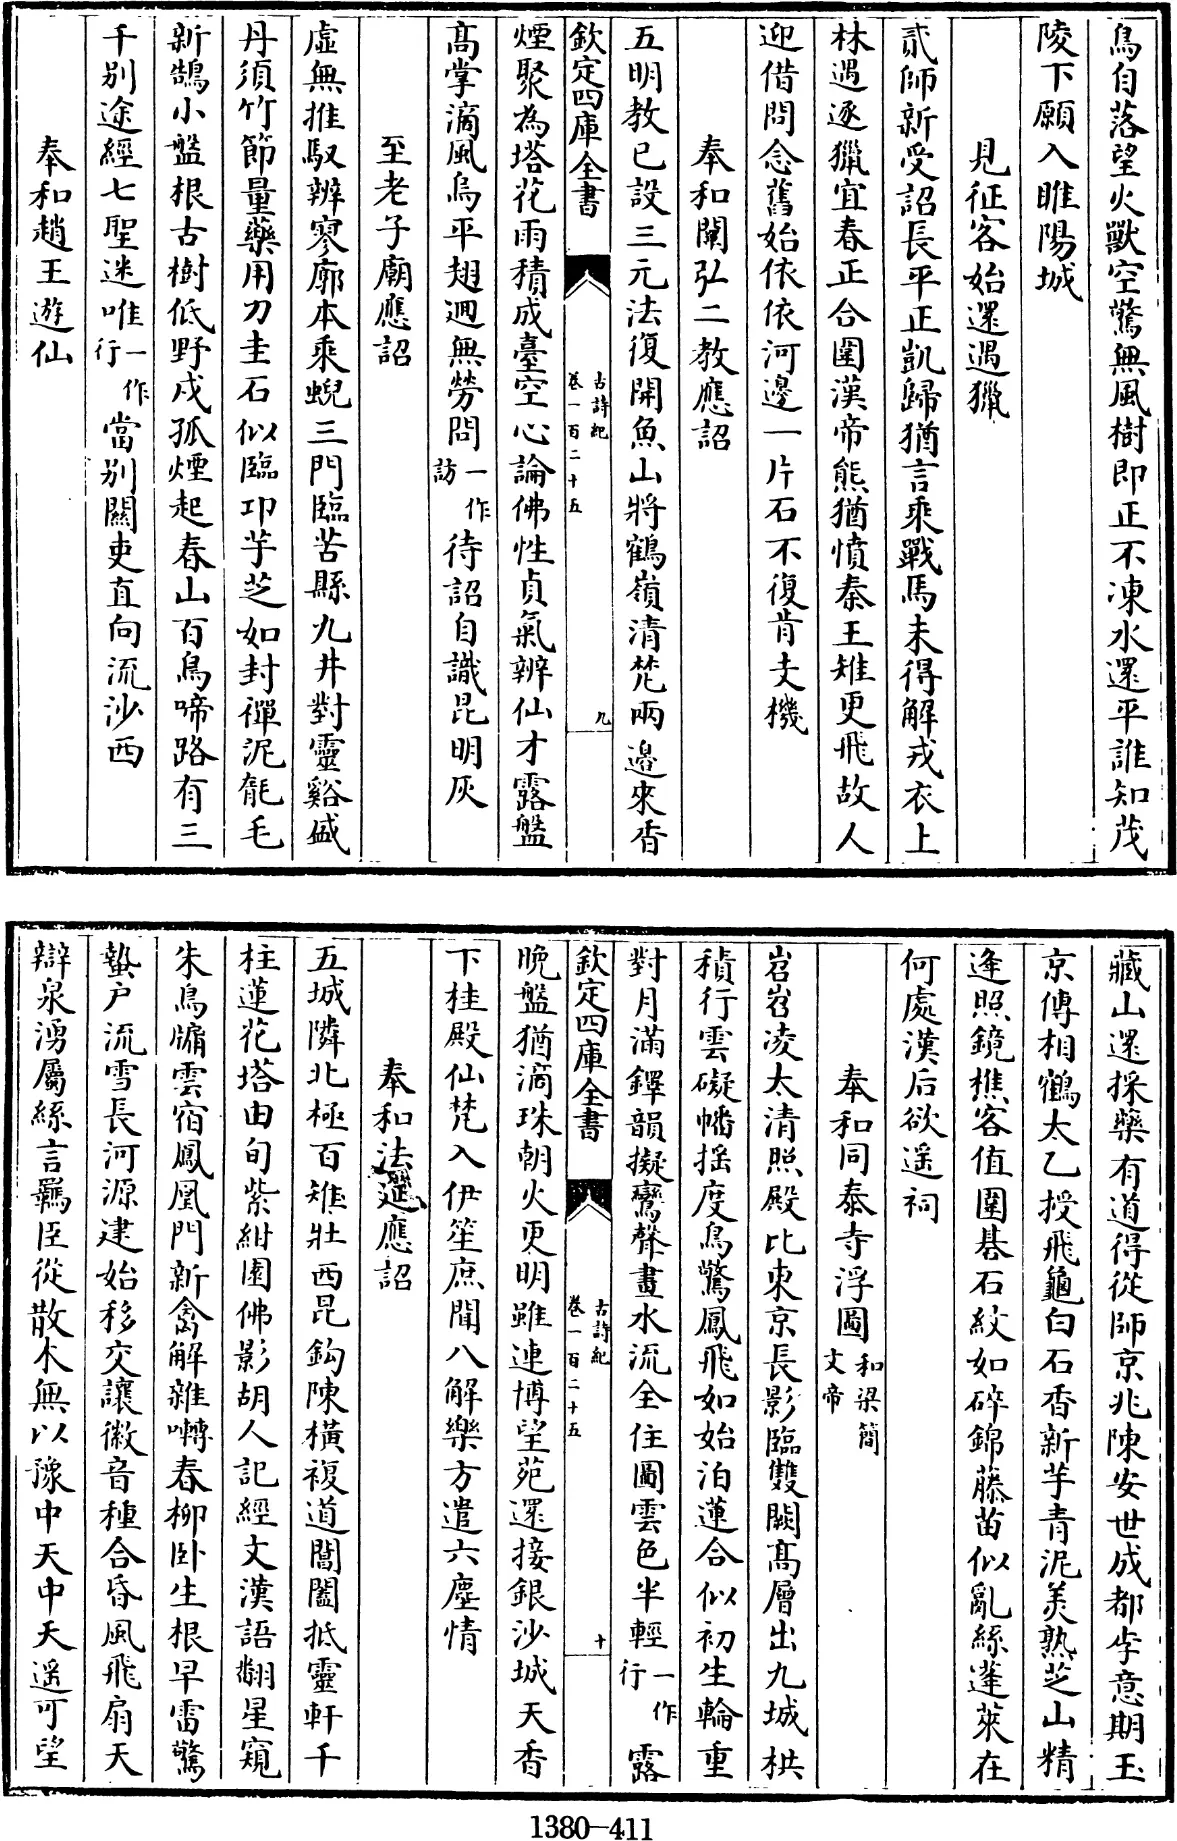 鳥自落望火獸空驚無風樹即正不凍水還平誰知茂
陵下願入睢陽城
見征客始還遇獵
貳師新受詔長平正凱歸猶言乘戰馬未得解戎衣上
林遇逐獵宜春正合圍漢帝熊猶憤秦王雉更飛故人
迎借問念舊始依依河邊一片石不復肯支機
奉和闡弘二教應詔
五明教已設三元法復開魚山將鶴嶺清梵兩邊來香
欽定四庫全書
古詩紀
卷一百二十五
九
煙聚為塔花雨積成臺空心論佛性貞氣辨仙才露盤
高掌滴風烏平翅迴無勞問一作訪待詔自識昆明灰
至老子廟應詔
虛無推馭辨寥廓本乘蜺三門臨苦縣九井對靈谿盛
丹須竹節量藥用刀圭石似臨邛芋芝如封禪泥毻毛
新鵠小盤根古樹低野戍孤煙起春山百鳥啼路有三
千别途經七聖迷唯一作行當别關吏直向流沙西
奉和趙王遊仙
藏山還採藥有道得從師京兆陳安世成都李意期玉
京傳相鶴太乙授飛龜白石香新芋青泥美熟芝山精
逢照鏡樵客值圍碁石紋如碎錦藤苗似亂絲蓬萊在
何處漢后欲遥祠
奉和同泰寺浮圖和梁簡文帝
岧岧凌太清照殿比東京長影臨雙闕高層出九城栱
積行雲礙幡揺度鳥驚鳳飛如始泊蓮合似初生輪重
對月滿鐸韻擬鸞聲畫水流全住圖雲色半輕一作行露
欽定四庫全書
古詩紀
卷一百二十五
十
晚盤猶滴珠朝火更明雖連博望苑還接銀沙城天香
下桂殿仙梵入伊笙庶聞八解樂方遣六塵情
奉和法筵應詔
五城隣北極百雉壯西昆鈎陳横複道閶闔抵靈軒千
柱蓮花塔由旬紫紺園佛影胡人記經文漢語翻星窺
朱鳥牖雲宿鳳凰門新禽解雜囀春柳卧生根早雷驚
蟄户流雪長河源建始移交讓徽音種合昏風飛扇天
辯泉湧屬絲言羈臣從散木無以豫中天中天遥可望
1380-411